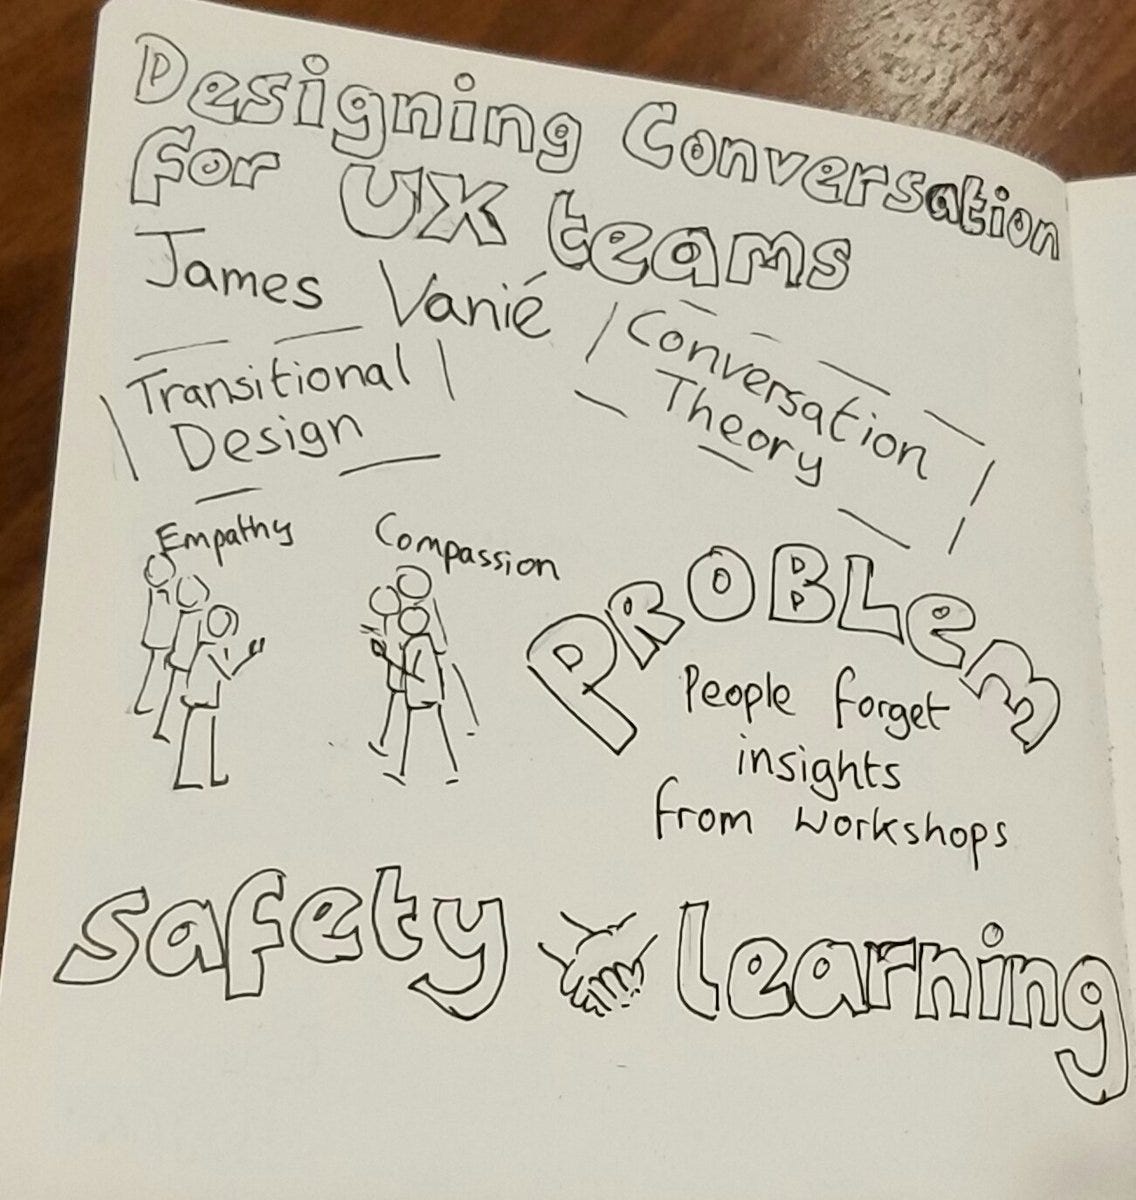 Designing Conversation
for UX teams
James Vanié
Transitional
Design
Conversation
Theory
Empathy
Compassion
PROBLEM
People forget
insights
from workshops
safety
learning